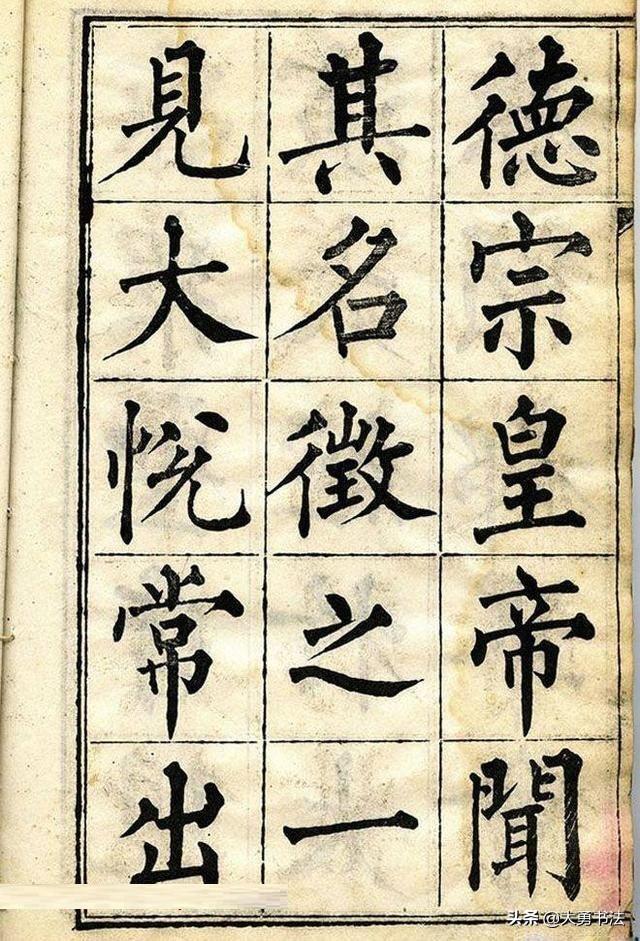 德宗皇帝聞
其名徵之一
見大悅常出
头条 @大勇书法